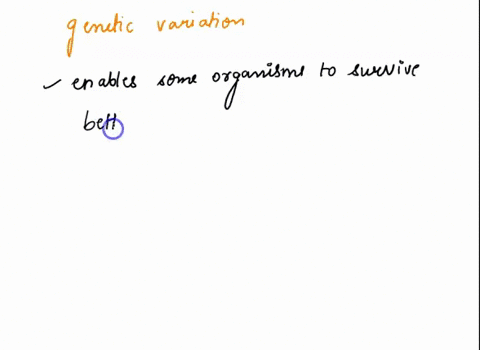 genetic variation
✓ enables some organisms to survive
bett